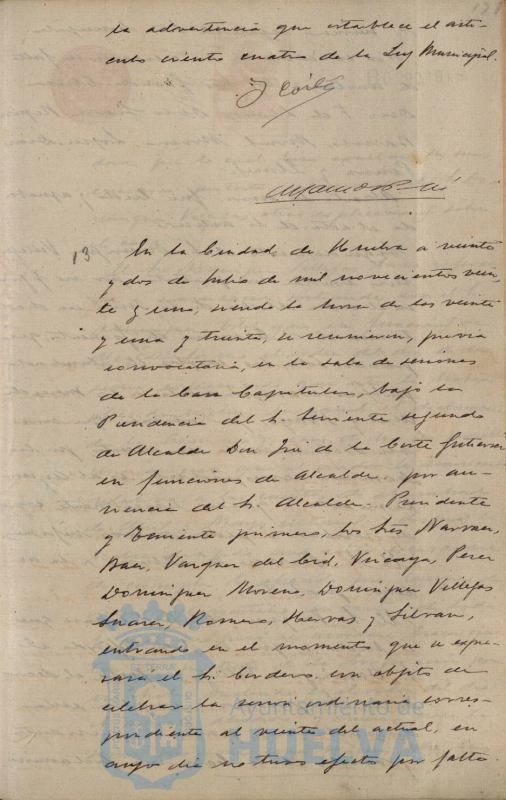 la advertencia que establece el artí-
culo ciento cuatro de la Ley Municipal.
J Corte
13
En la Ciudad de Huelva a veinte
y dos de Julio de mil novecientos vein-
te y uno, siendo la hora de las veinte
y una y treinta, se reunieron, previa
convocatoria, en la sala de sesiones
de la Casa Capitular, bajo la
Presidencia del Sr. Teniente segundo
de Alcalde Don José de la Corte Gutierrez
en funciones de Alcalde, por au-
sencia del Sr. Alcalde Presidente
y Teniente primero, los Sres Narvaez,
Baez, Vazquez del Cid, Vizcaya, Perez
Dominguez Moreno, Dominguez Villegas
Suarez, Romero, Hervas y Silvan,
entrando en el momento que se expre-
sara el Sr. Cordero, con objeto de
celebrar la sesion ordinaria corres-
pondiente al veinte del actual, en
cuyo dia no tuvo efecto por falta
Ayuntamiento de
HUELVA